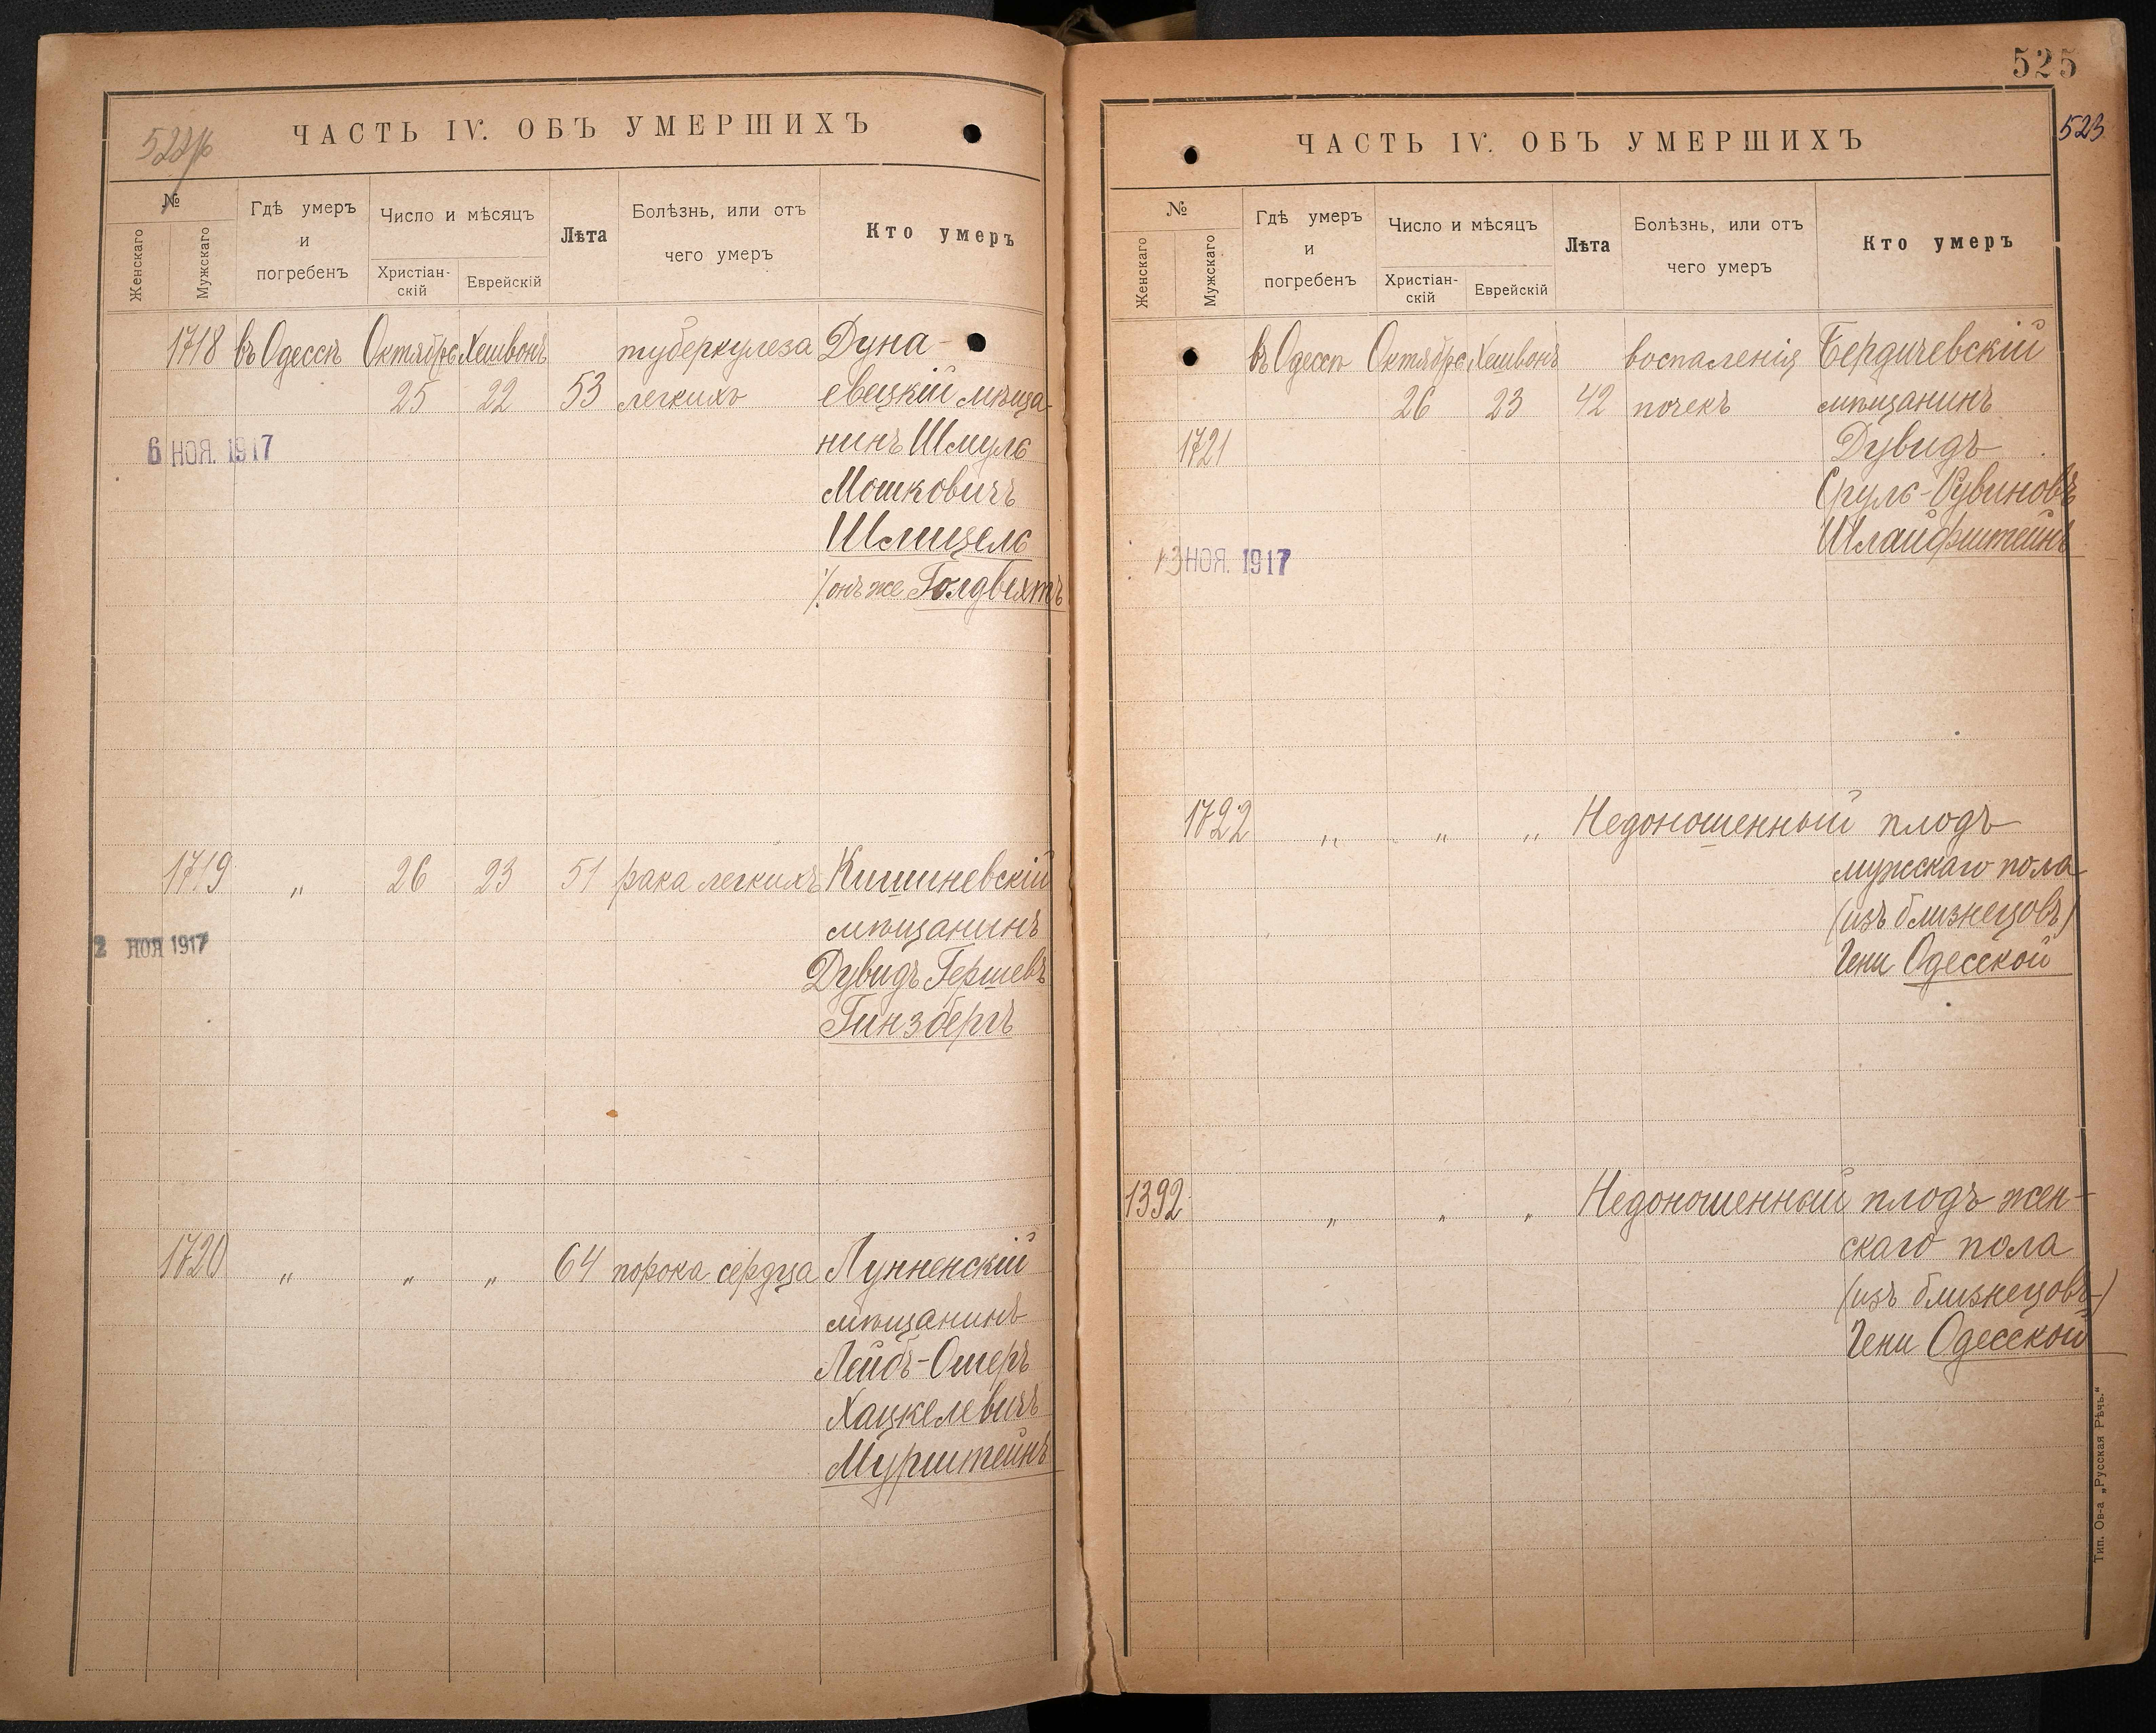 ЧАСТЬ IV. ОБЪ УМЕРШИХЪ
№
Женскаго
Мужскаго
Гдѣ умеръ
и
погребенъ
Число и мѣсяцъ
Христіан-
скій
Еврейскій
Лѣта
Болѣзнь, или отъ
чего умеръ
Кто умеръ
1718 въ Одессѣ Октябрь Хешвонъ туберкулеза Дуна-
25 22 53 легкихъ евецкій мѣща-
6 НОЯ. 1917 нинъ Шмуль
Мошковичъ
Шмицель
онъ же Голдвихтъ
1719 „ 26 23 51 рака легкихъ Кишиневскій
2 НОЯ 1917 мѣщанинъ
Дувидъ Гершевъ
Гинзбергъ
1720 „ „ „ 64 порока сердца Лунненскій
мѣщанинъ
Лейбъ-Ошеръ
Хацкелевичъ
Мурштейнъ
525
523
ЧАСТЬ IV. ОБЪ УМЕРШИХЪ
№
Женскаго
Мужскаго
Гдѣ умеръ
и
погребенъ
Число и мѣсяцъ
Христіан-
скій
Еврейскій
Лѣта
Болѣзнь, или отъ
чего умеръ
Кто умеръ
въ Одессѣ Октябрь Хешвонъ воспаленія Бердичевскій
26 23 42 почекъ мѣщанинъ
1721 Дувидъ
Сруль-Рувиновъ
Шлайфштейнъ
13 НОЯ. 1917
1722 „ „ „ Недоношенный плодъ
мужскаго пола
(изъ близнецовъ)
Гени Одесской
1392 „ „ „ Недоношенный плодъ жен-
скаго пола
(изъ близнецовъ)
Гени Одесской
Тип. Ов-а „Русская Рѣчь.“